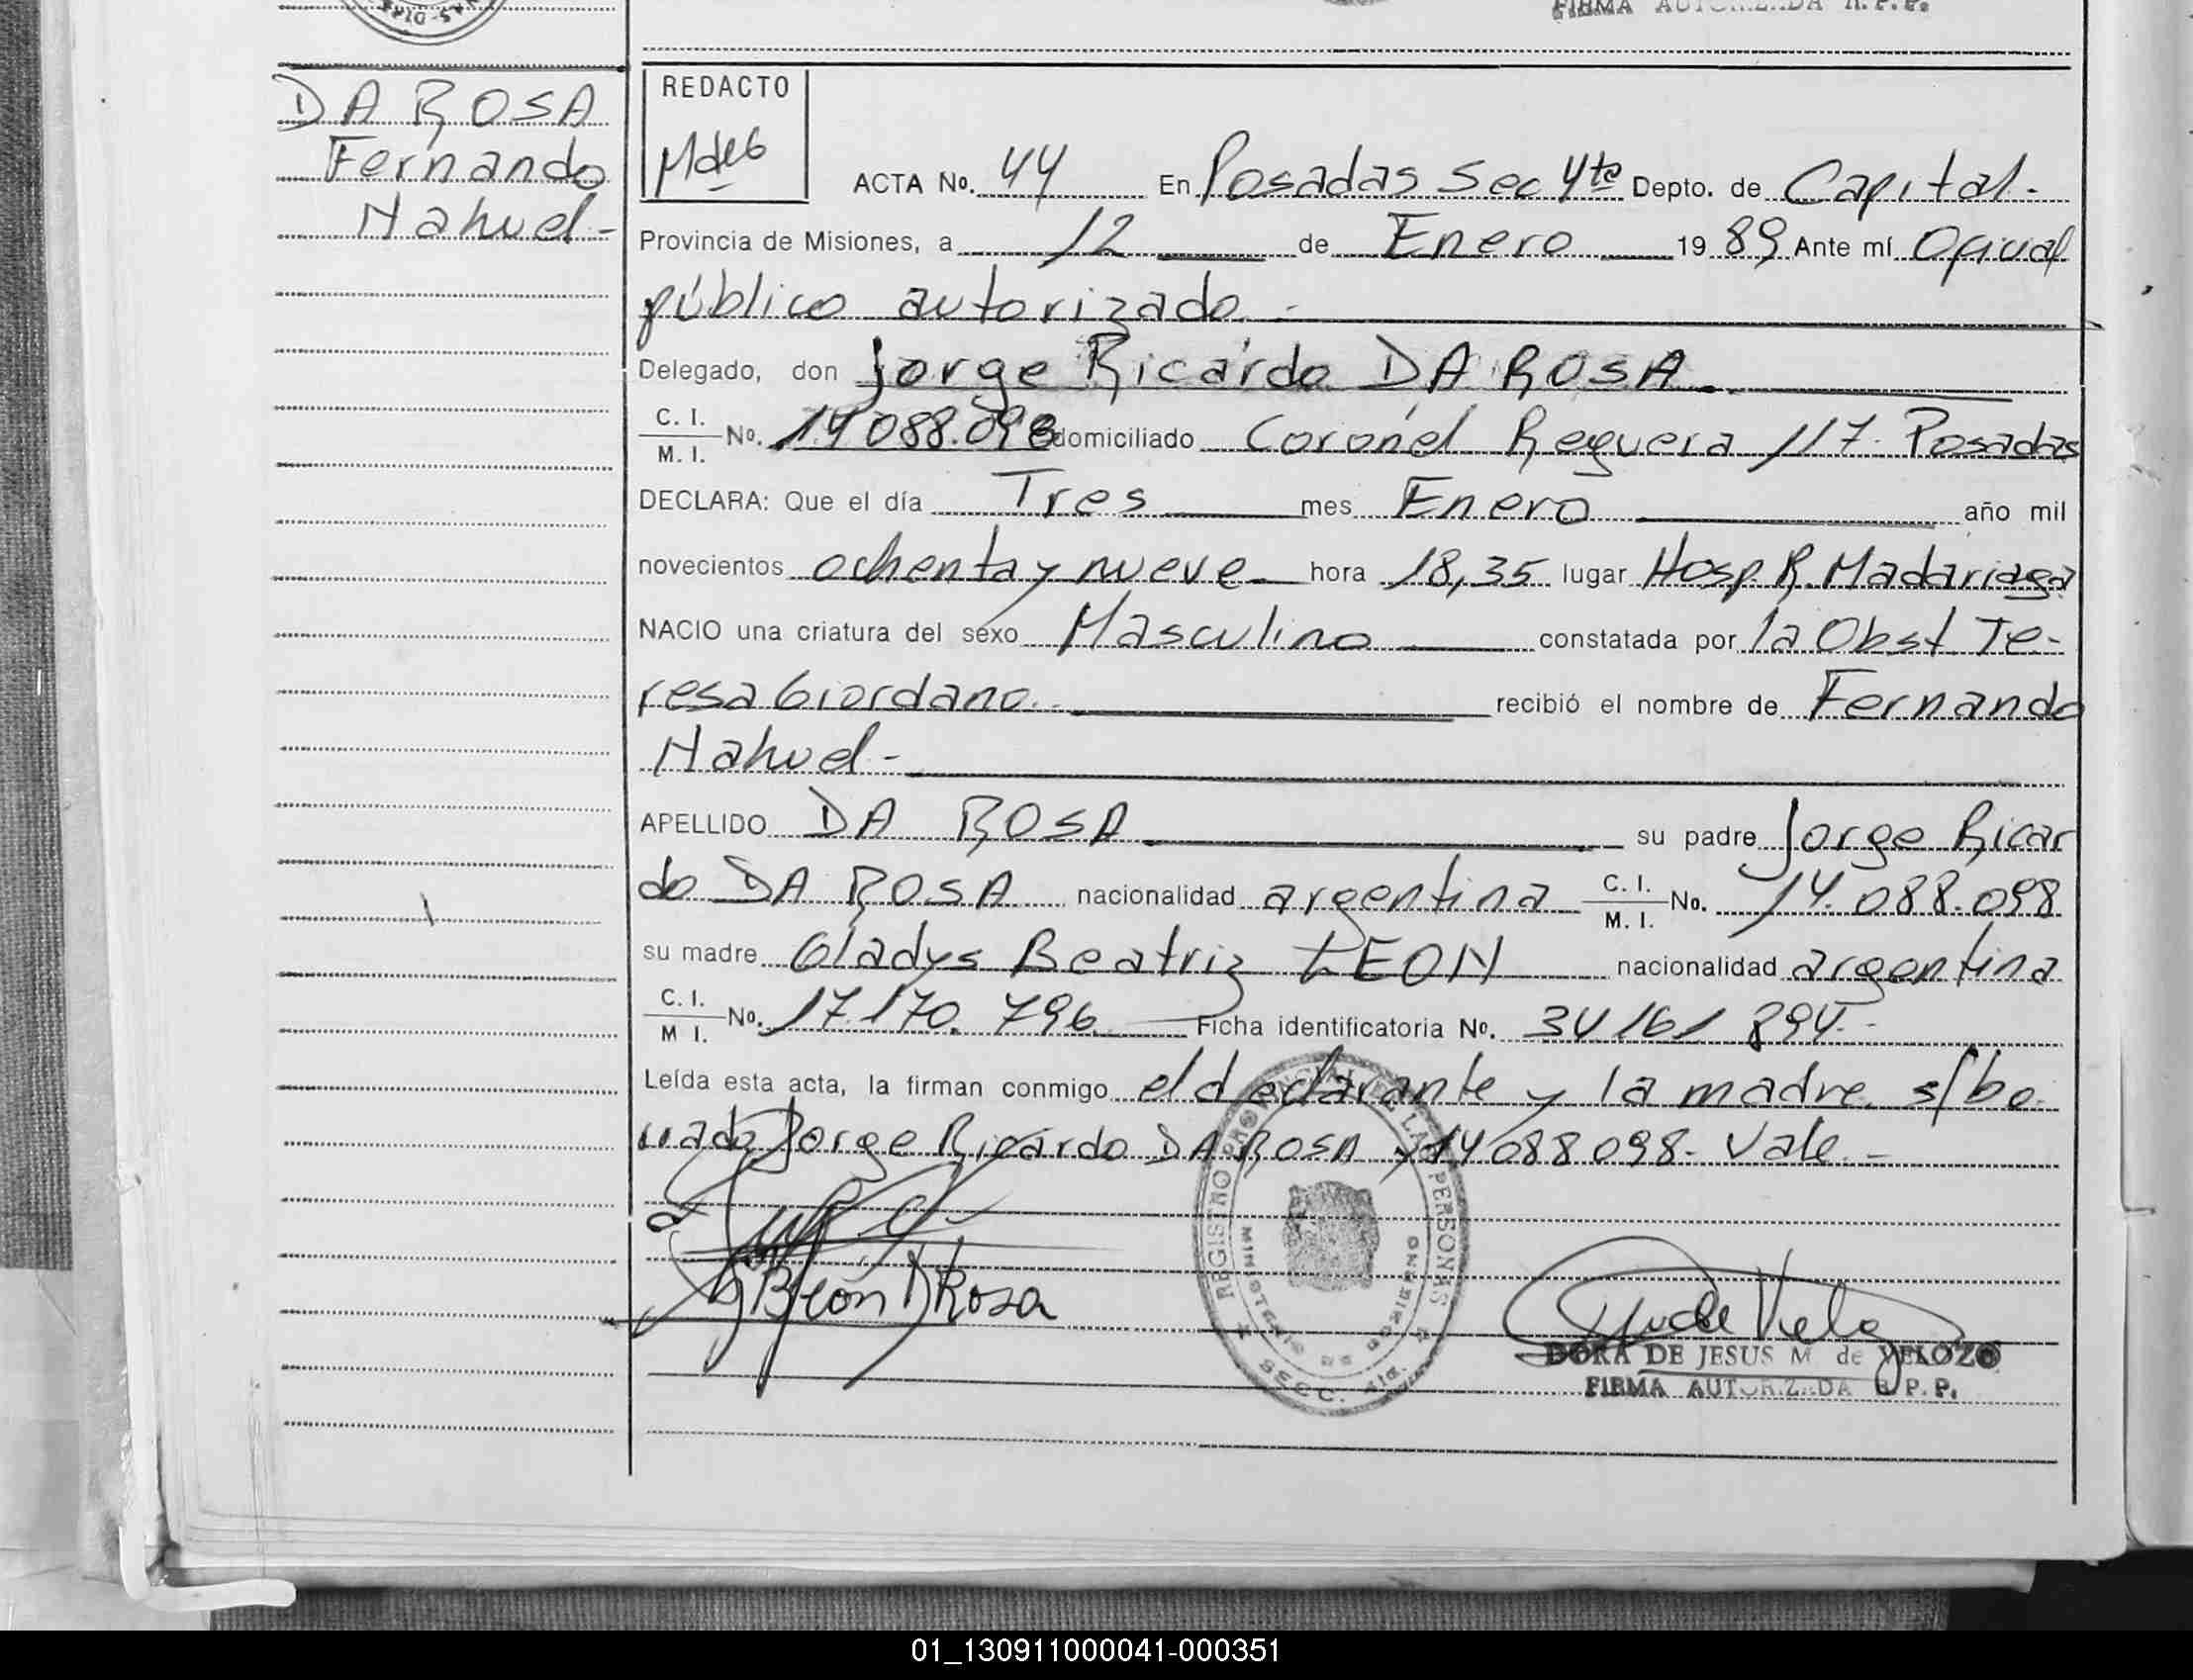 FIRMA AUTORIZADA R. P. P.
DA ROSA
Fernando
Nahuel-
REDACTO
ACTA No. 44 En Posadas Sec 4ta Depto. de Capital.-
Provincia de Misiones, a 12 de Enero 19 89 Ante mí Oficial
público autorizado.-
Delegado, don Jorge Ricardo DA ROSA.
C. I.
M. I. No. 14088.098 domiciliado Coronel Reguera 117- Posadas
DECLARA: Que el día Tres mes Enero año mil
novecientos ochenta y nueve hora 18,35 lugar Hosp. R. Madariaga
NACIO una criatura del sexo Masculino constatada por la Obst. Te-
resa Giordano. recibió el nombre de Fernando
Nahuel-
APELLIDO DA ROSA su padre Jorge Ricar
do DA ROSA nacionalidad argentina C. I. M. I. No. 14.088.098
su madre Gladys Beatriz LEON nacionalidad argentina
C. I.
M I. No. 17.170.796 Ficha identificatoria No. 34 161 894.-
Leída esta acta, la firman conmigo el declarante y la madre. s/bo
rrado Jorge Ricardo DA ROSA y 14088098- Vale.-
G B León D Rosa
REGISTRO PROVINCIAL DE LAS PERSONAS
MINISTERIO DE GOBIERNO
SECC. 4ta.
DORA DE JESUS M de VELOZO
FIRMA AUTORIZADA R. P. P.
01_130911000041-000351